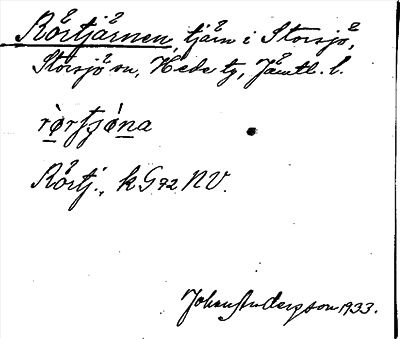 Rörtjärnen, tjärn i Storsjö,
Storsjö sn, Hede tg, Jämtl. l.
rørtjøna
Rörtj., k G 92 NV.
1933.